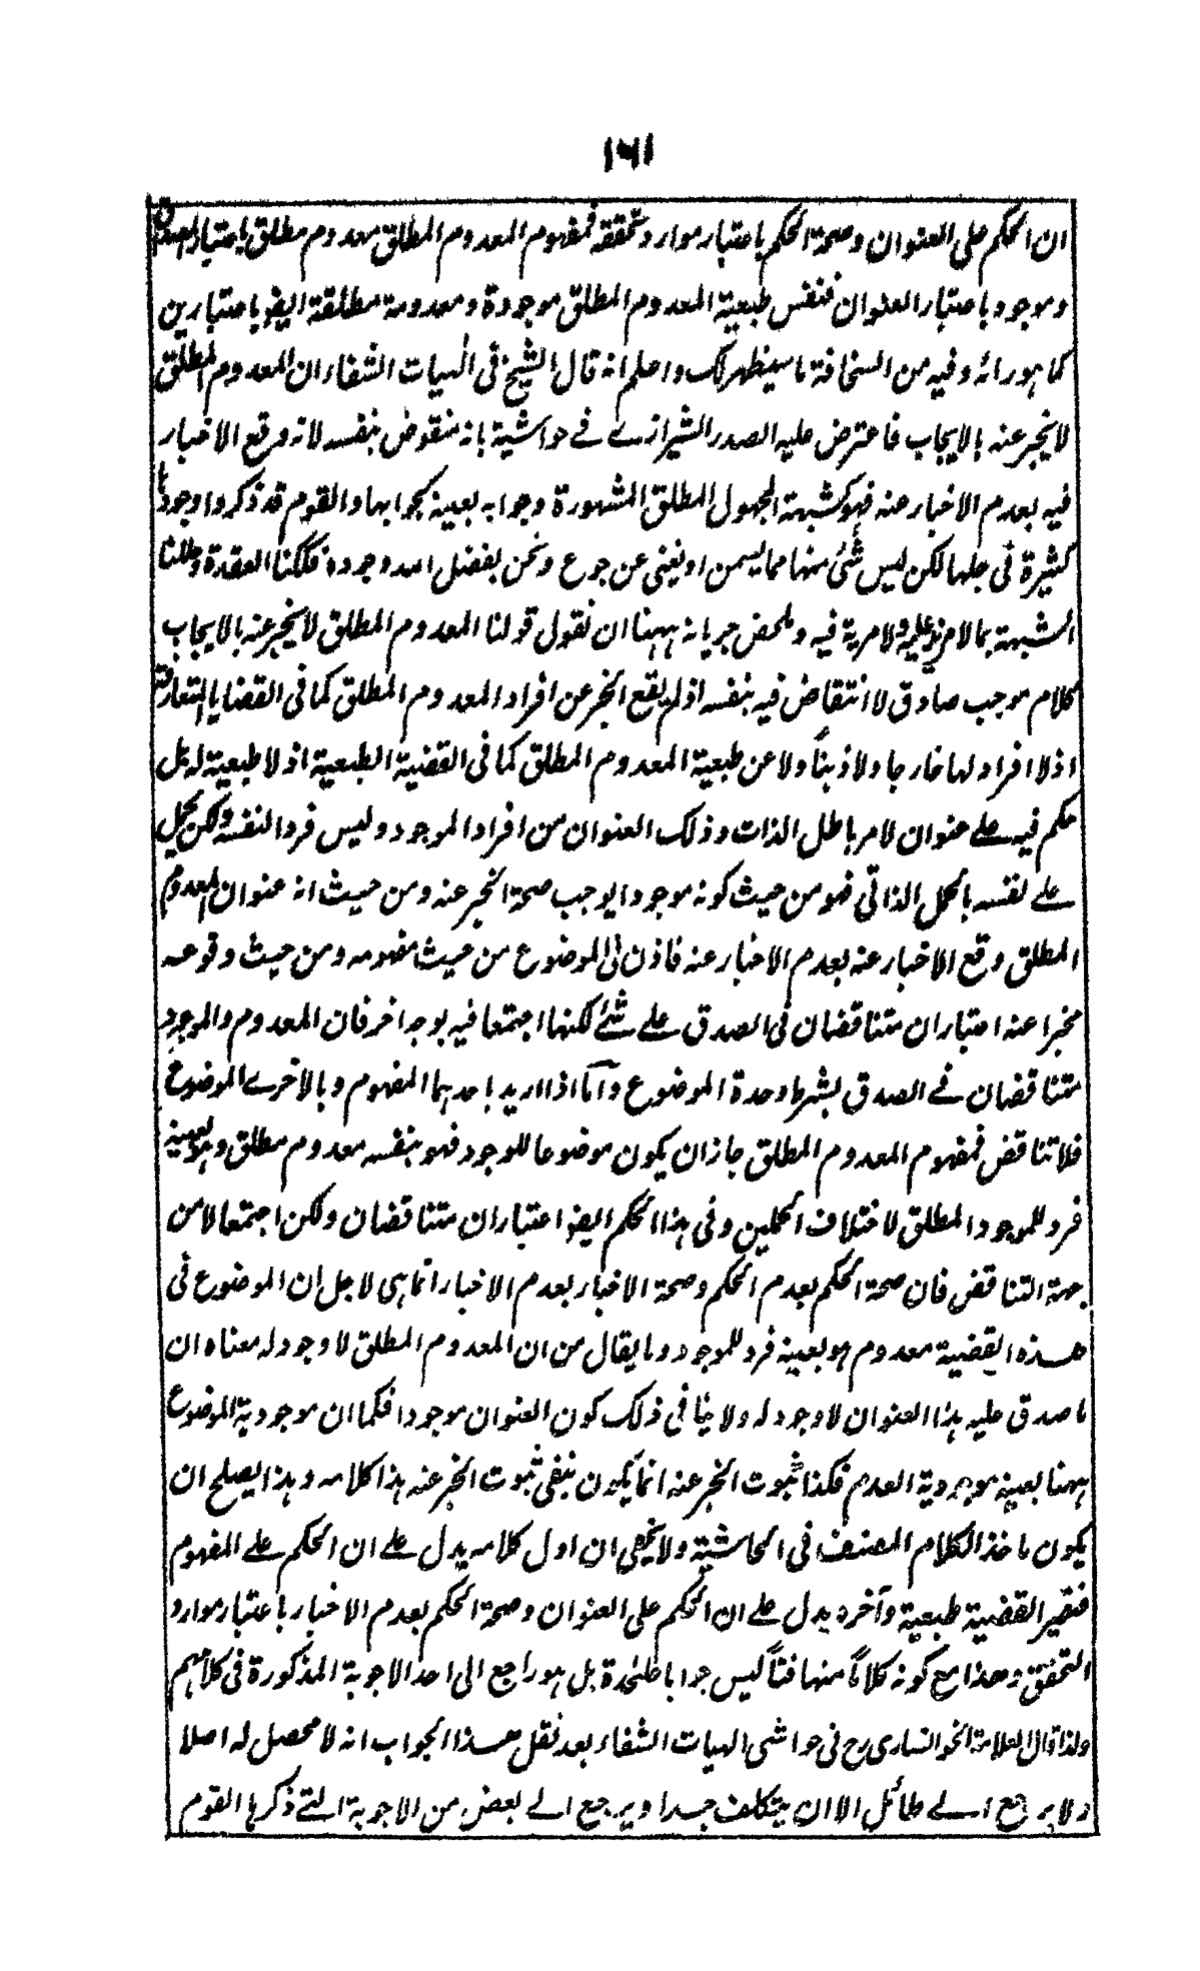 ١٦١
ان الحكم على العنوان وصحة الحكم باعتبار موارد تحققه فمفهوم المعدوم المطلق معدوم مطلق باعتبار المصداق
وموجود باعتبار العنوان فنفس طبعية المعدوم المطلق موجودة ومعدومة مطلقة ايضو باعتبارين
كما هو رائه وفيه من السخافة ما سيظهر لك واعلم انه قال الشيخ فى الهيات الشفاء ان المعدوم المطلق
لا يخبر عنه بالايجاب فاعترض عليه الصدر الشيرازے فے حواشية بانه منقوض بنفسه لانه وقع الاخبار
فيه بعدم الاخبار عنه فهو كشبهة المجهول المطلق المشهورة وجوابه بعينه كجوابها والقوم قد ذكروا وجوها
كثيرة فى حلها لكن ليس شئ منها مما يسمن او يغنى عن جوع ونحن بفضل الله وجوده فككنا العقدة وحللنا
الشبهة بما لا مزيد عليه ولا مرية فيه وملخص جريانه ههنا ان نقول قولنا المعدوم المطلق لا يخبر عنه بالايجاب
كلام موجب صادق لا انتقاض فيه بنفسه اذ لم يقع الخبر عن افراد المعدوم المطلق كما فى القضايا المتعارفة
اذ لا افراد لها خارجا ولا ذهناً ولا عن طبعية المعدوم المطلق كما فى القضية الطبعية اذ لا طبعية له بل
حكم فيه علے عنوان لامر باطل الذات وذلك العنوان من افراد الموجود وليس فردا لنفسه ولكن يحمل
علے نفسه بالحمل الذاتى فهو من حيث كونه موجودا يوجب صحة الخبر عنه ومن حيث انه عنوان المعدوم
المطلق وقع الاخبار عنه بعدم الاخبار عنه فاذن فى الموضوع من حيث مفهومه ومن حيث وقوعه
مخبرا عنه اعتباران متناقضان فى الصدق علے شئے لكنها اجتمعا فيه بوجه اخر فان المعدوم والموجود
متناقضان فے الصدق بشرط وحدة الموضوع وآما اذا اريد باحدهما المفهوم وبالاخرے الموضوع
فلا تناقض فمفهوم المعدوم المطلق جاز ان يكون موضوعا للوجود فهو بنفسه معدوم مطلق وهو بعينه
فرد للموجود المطلق لاختلاف الحملين وفى هذا الحكم ايضو اعتباران متناقضان ولكن اجتمعا لا من
جهة التناقض فان صحة الحكم بعدم الحكم وصحة الاخبار بعدم الاخبار انما هى لاجل ان الموضوع فى
هذه القضية معدوم هو بعينه فرد للموجود وما يقال من ان المعدوم المطلق لا وجود له معناه ان
ما صدق عليه هذا العنوان لا وجود له ولا ينافى ذلك كون العنوان موجودا فكما ان موجودية الموضوع
ههنا بعينه موجودية العدم فكذا ثبوت الخبر عنه انما يكون بنفى ثبوت الخبر عنه هذا كلامه وهذا يصلح ان
يكون ماخذ الكلام المصنف فى الحاشية ولا يخفى ان اول كلامه يدل علے ان الحكم علے المفهوم
فتصير القضية طبعية وآخره يدل علے ان الحكم على العنوان وصحة الحكم بعدم الاخبار باعتبار موارد
التحقق وهذا مع كونه كلاماً متهافتاً ليس جوابا علٰحدة بل هو راجع الى احد الاجوبة المذكورة فى كلامهم
ولذا قال العلامة الخوانسارى رح فى حواشى الهيات الشفاء بعد نقل هذا الجواب انه لا محصل له اصلا
ولا يرجع الے طائل الا ان يتكلف جدا ويرجع الے بعض من الاجوبة التے ذكرها القوم